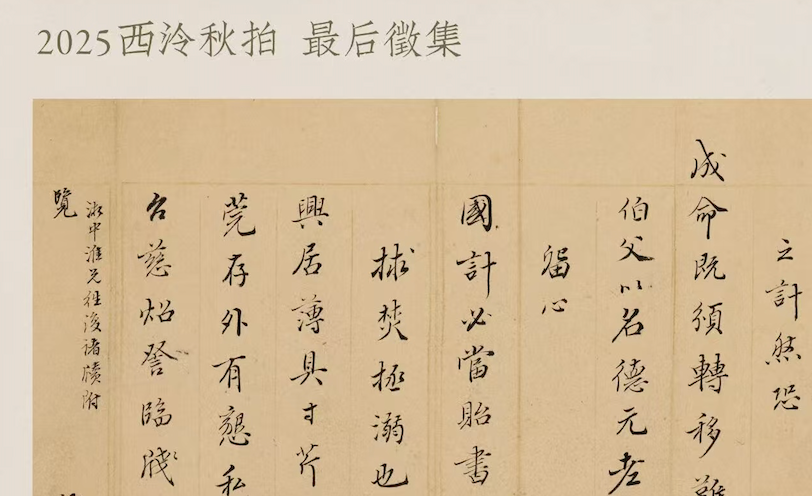 2025西泠秋拍 最后徵集
之計然恐
成命既須轉移難
伯父以名德元老
留心
國計必當貽書
捄焚拯溺也
興居薄具寸芹
莞存外有懇私
台慈炤詧臨牋
淮兄往後諸牘附
覽